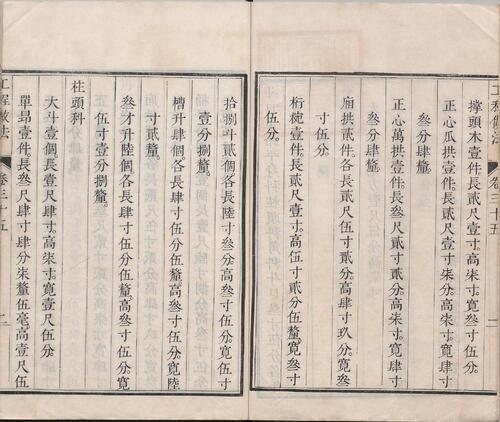 撐頭木壹件。長貳尺壹寸。寬叁寸伍分。
正心瓜拱壹件。長貳尺壹寸柒分。高柒寸。寬肆寸
叁分肆釐。
正心萬拱壹件。長叁尺貳寸貳分。高柒寸。寬肆寸
叁分肆釐。
廂拱貳件。各長貳尺伍寸貳分。高肆寸玖分。寬叁
寸伍分。
桁椀壹件。長貳尺壹寸。高伍寸貳分伍釐。寬叁寸
伍分。
工程做法
卷三十五
一
拾捌斗貳個。各長陸寸叁分。高叁寸伍分。寬伍寸
壹分捌釐。
槽升肆個。各長肆寸伍分伍釐。高叁寸伍分。寬陸
寸貳釐。
叁才升陸個。各長肆寸伍分伍釐。高叁寸伍分。寬
伍寸壹分捌釐。
柱頭科
大斗壹個。長壹尺肆寸。高柒寸。寬壹尺伍分。
單昂壹件。長叁尺肆寸肆分柒釐伍毫。高壹尺伍
工程做法
卷三十五
二